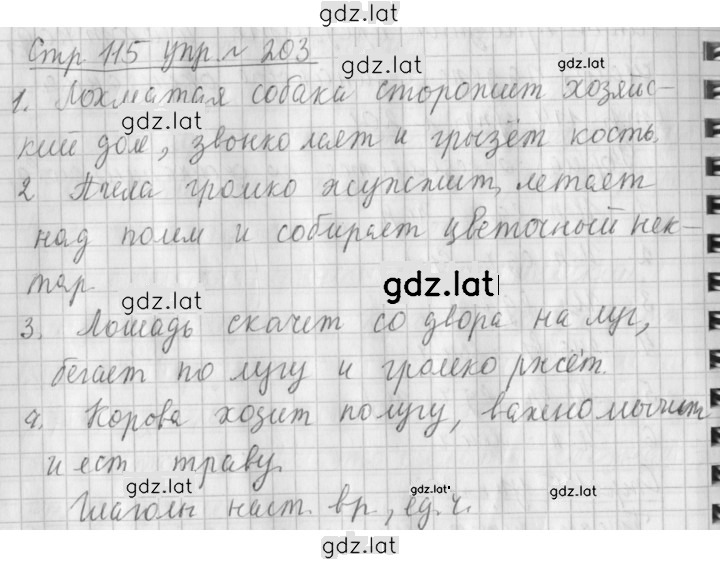 gdz.lat
Стр 115 упр. № 203
gdz.lat
gdz.lat
1. Лохматая собака сторопит хозяйс-
gdz.lat
кий дом, звонко лает и грызёт кость.
2 Пчела громко жужжит, летает
над полем и собирает цветочный нек-
gdz.lat
тар.
gdz.lat
3. Лошадь скачет со двора на луг,
бегает по лугу и громко ржёт.
4. Корова ходит по лугу, важно мычит
и ест траву.
gdz.lat
gdz.lat
gdz.lat
Глаголы наст. вр., ед. ч.
gdz.lat